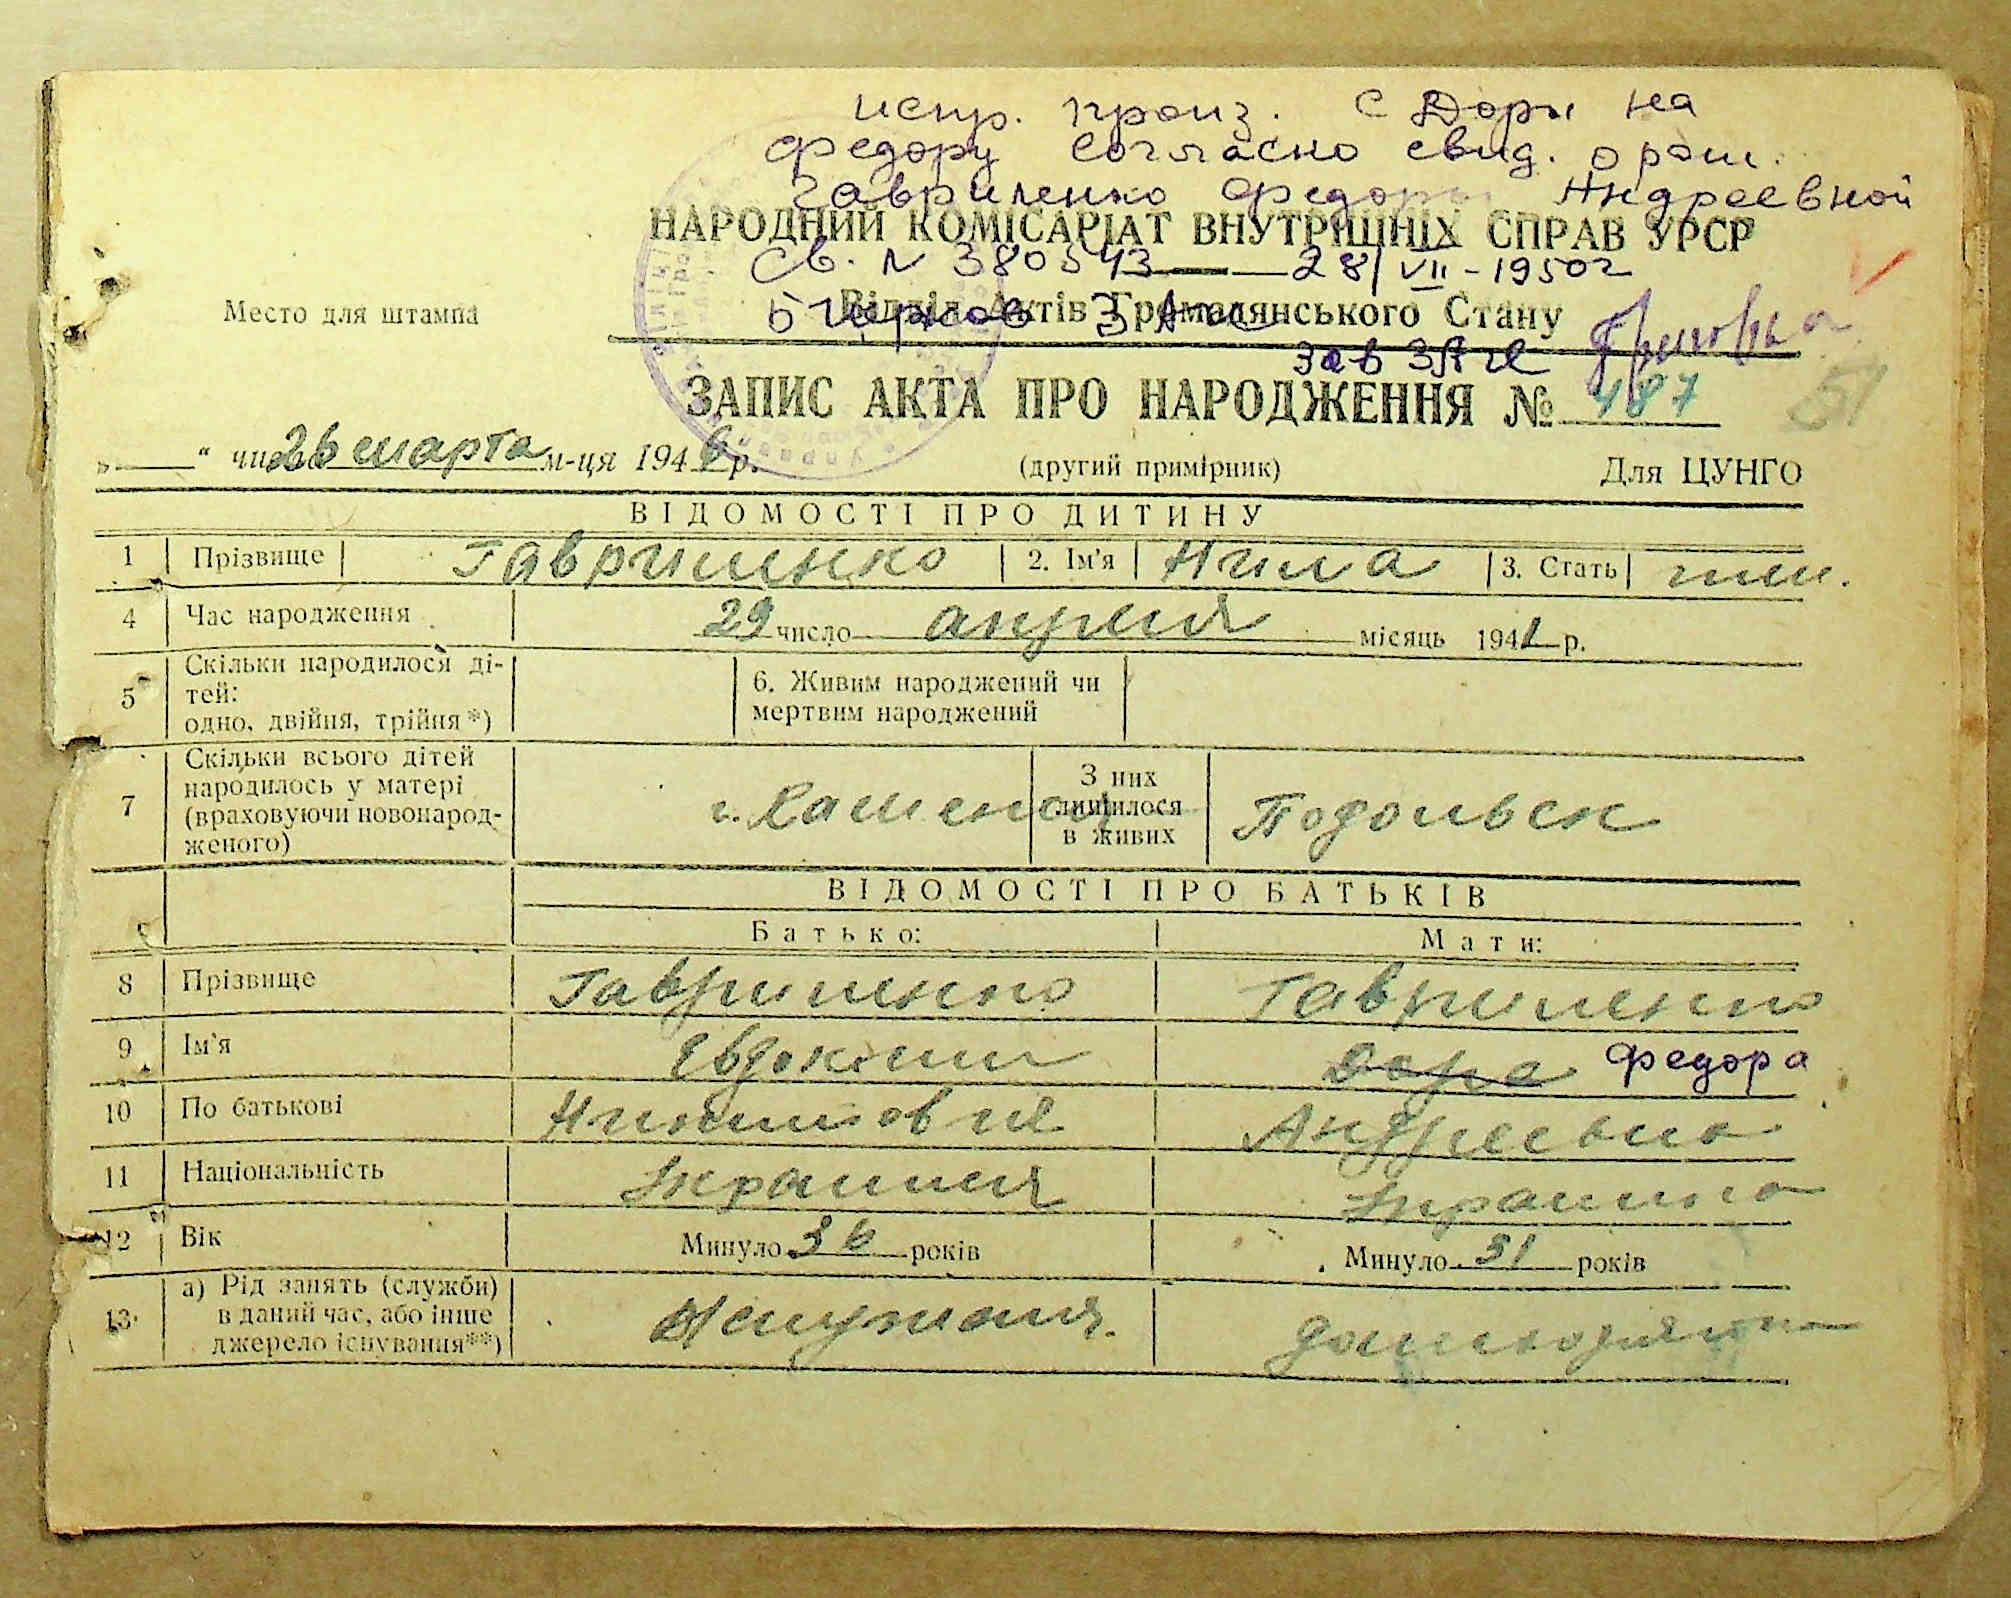 испр. произ. с Доры на
Федору согласно свид. о рож.
Гавриленко Федоры Андреевной
НАРОДНИЙ КОМІСАРІАТ ВНУТРІШНІХ СПРАВ УРСР
Св. N 380543 — 28/VII-1950г
Відділ Актів Громадянського Стану
Место для штампа
Зав ЗАГС
ЗАПИС АКТА ПРО НАРОДЖЕННЯ № 487
51
„ “ числа 26 марта м-ця 1946 р.
(другий примірник)
Для ЦУНГО
ВІДОМОСТІ ПРО ДИТИНУ
1 Прізвище Гавриленко 2. Ім'я Нила 3. Стать жен.
4 Час народження 29 число апреля місяць 1941 р.
5 Скільки народилося ді-
тей:
одно, двійня, трійня *)
6. Живим народжений чи
мертвим народжений
7 Скільки всього дітей
народилось у матері
(враховуючи новонарод-
женого)
г. Каменец
З них
лишилося
в живих
Подольск
ВІДОМОСТІ ПРО БАТЬКІВ
Батько: Мати:
8 Прізвище Гавриленко Гавриленко
9 Ім'я Евдоким Дора Федора
10 По батькові Андреевна
11 Національність Украинец Украинка
12 Вік Минуло 36 років Минуло 31 років
13 а) Рід занять (служби)
в даний час, або інше
джерело існування**)
Служащ. домохозяйка